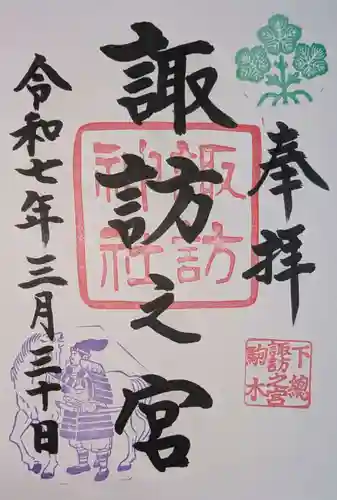 奉拝
諏訪之宮
令和七年三月三十日
諏訪
神社
下總
諏訪之宮
駒木